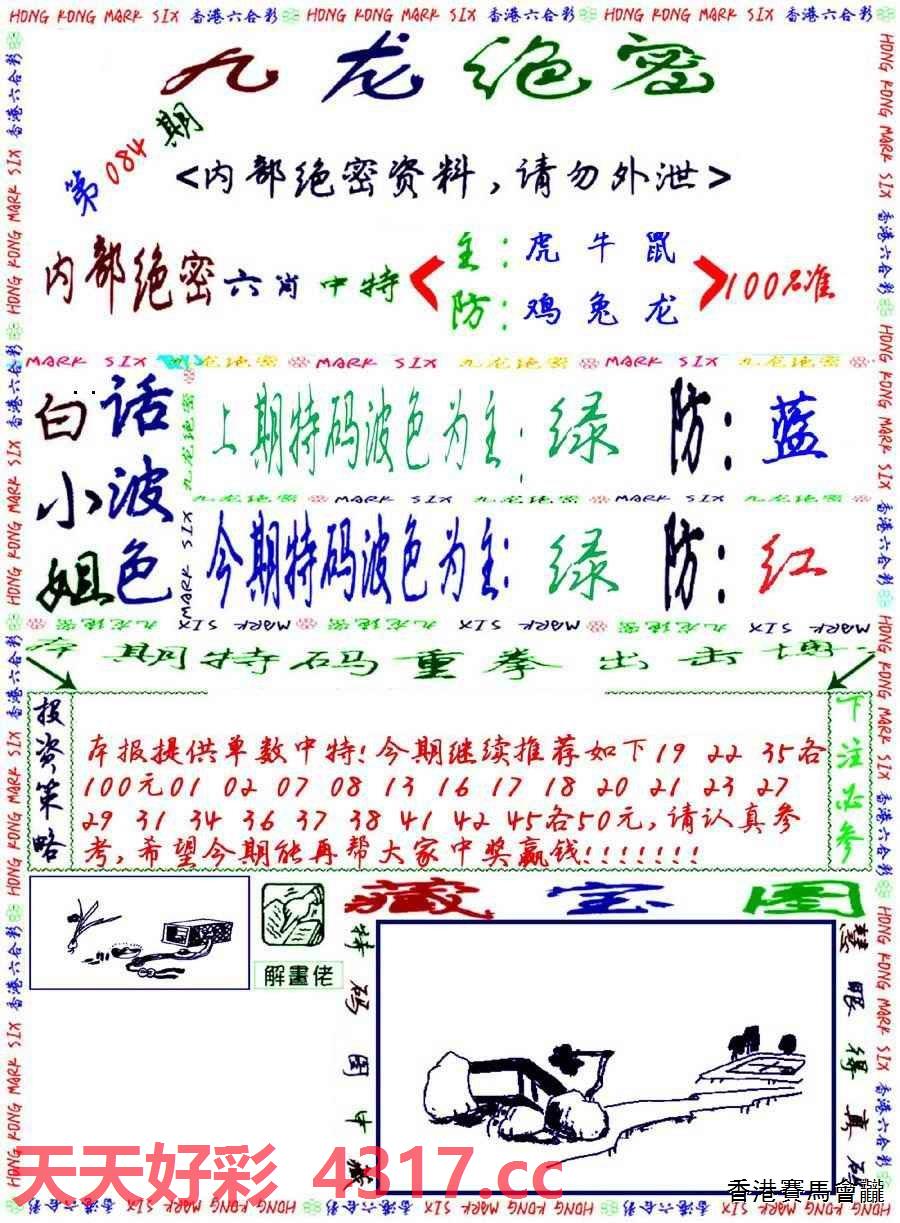 HONG KONG MARK SIX 香港六合彩 HONG KONG MARK SIX 香港六合彩 HONG KONG MARK SIX 香港六合彩
九龙绝密
第084期
<内部绝密资料,请勿外泄>
内部绝密六肖中特
主:虎牛鼠
防:鸡兔龙
100%准
MARK SIX 九龙绝密 MARK SIX 九龙绝密 MARK SIX 九龙绝密
白话
小波
姐色
上期特码波色为主:绿 防:蓝
九龙绝密 MARK SIX 九龙绝密 MARK SIX 九龙绝密
今期特码波色为主:绿 防:红
九龙绝密 MARK SIX 九龙绝密 MARK SIX 九龙绝密 MARK SIX
本期特码重拳出击
投资策略
本报提供单数中特!今期继续推荐如下19 22 35各
100元01 02 07 08 13 16 17 18 20 21 23 27
29 31 34 36 37 38 41 42 45各50元,请认真参
考,希望今期能再帮大家中奖赢钱!!!!!!!
下注必参
藏宝图
解畫佬
特码图中
慧眼得真
天天好彩 4317.cc
香港賽馬會